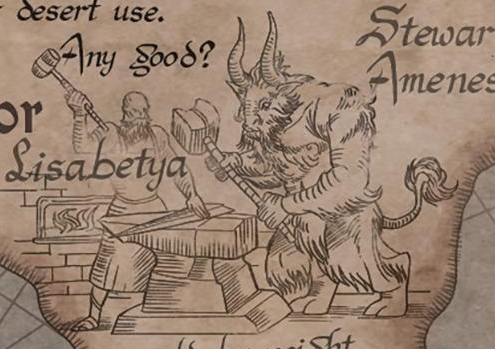 desert use.
Any good?
Stewar
Amenes
or
Lisabetya